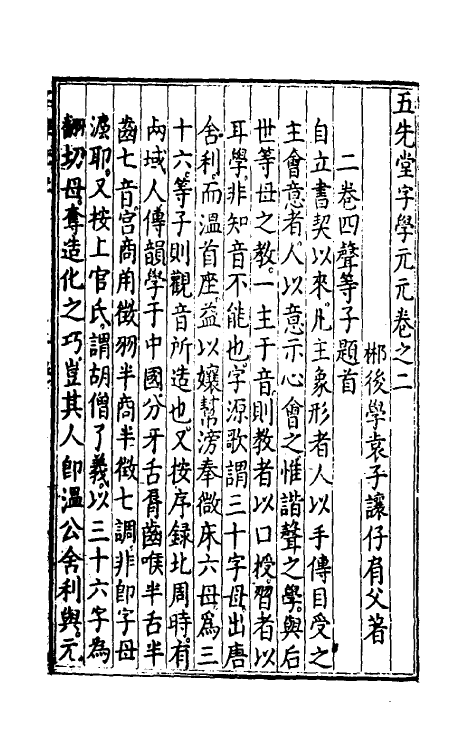 五先堂字學元元卷之二
郴後學袁子讓仔肩父著
二卷四聲等子題首
自立書契以來凡主象形者人以手傳目受之
主會意者人以意示心會之惟諧聲之學與后
世等母之教一主于音則教者以口授習者以
耳學非知音不能也字源歌謂三十字母出唐
舍利而溫首座益以孃幫滂奉微床六母為三
十六等子則觀音所造也又按序録北周時有
西域人傳韻學于中國分牙舌脣齒喉半舌半
齒七音宮商角徵羽半商半徵七調非即字母
濫耶又按上官氏謂胡僧了義以三十六字為
翻切母奪造化之巧豈其人即溫公舍利與元